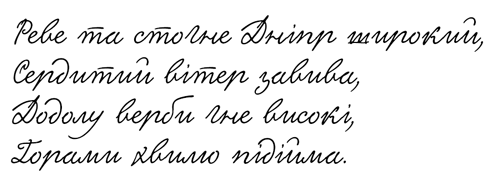 Реве та стогне Дніпр широкий,
Сердитий вітер завива,
Додолу верби гне високі,
Горами хвилю підійма.